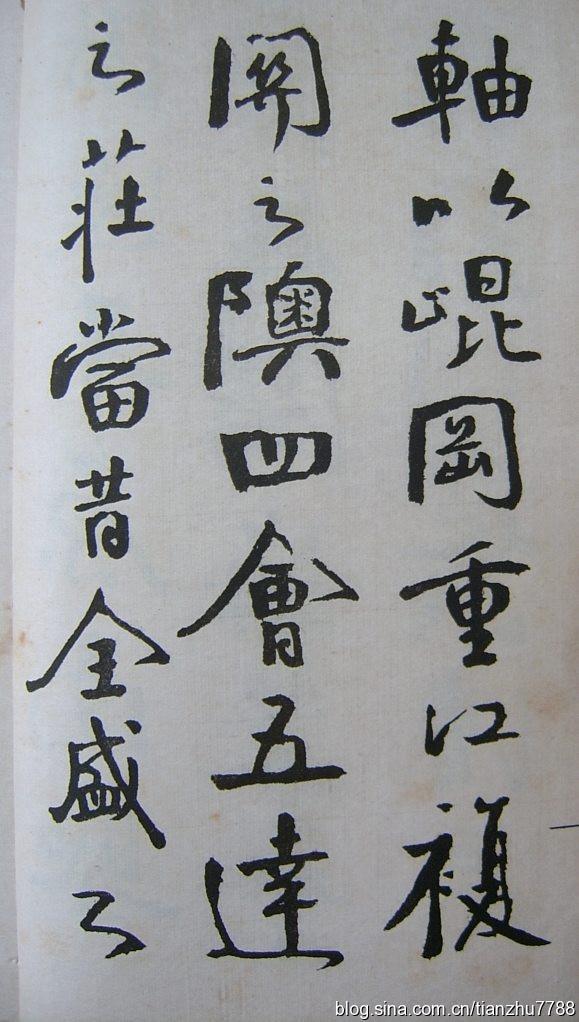 軸以崐岡重江複
關之隩四會五達
之莊當昔全盛之
blog.sina.com.cn/tianzhu7788